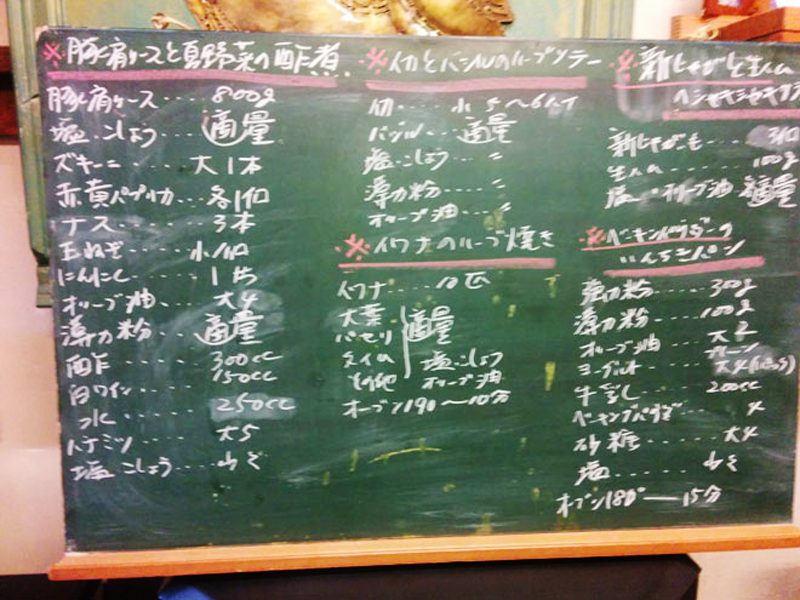 ※豚肩ロースと夏野菜の酢煮
豚肩ロース‥‥800g
塩、こしょう‥‥適量
ズキーニ‥‥大1本
赤黄パプリカ‥‥各1個
ナス‥‥3本
玉ねぎ‥‥小1個
にんにく‥‥1片
オリーブ油‥‥大4
薄力粉‥‥適量
酢‥‥300cc
白ワイン‥‥150cc
水‥‥250cc
ハチミツ‥‥大5
塩、こしょう‥‥少々
※イカとバジルのハーブソテー
イカ‥‥小5〜6ハイ
バジル‥‥適量
塩、こしょう‥‥〃
薄力粉‥‥〃
オリーブ油‥‥〃
※イワナのハーブ焼き
イワナ‥‥10匹
大葉 適量
パセリ
タイム 塩、こしょう
その他 オリーブ油
オーブン190〜10分
※新じゃがと生ハム
新じゃがいも‥‥3個
生ハム‥‥100g
塩、オリーブ油 各適量
※ベーキングパウダーの
強力粉‥‥300g
薄力粉‥‥100g
オリーブ油‥‥大2
ヨーグルト‥‥プレーン大4
牛乳‥‥200cc
ベーキングパウダー
砂糖‥‥大4
塩‥‥少々
オーブン180°―15分